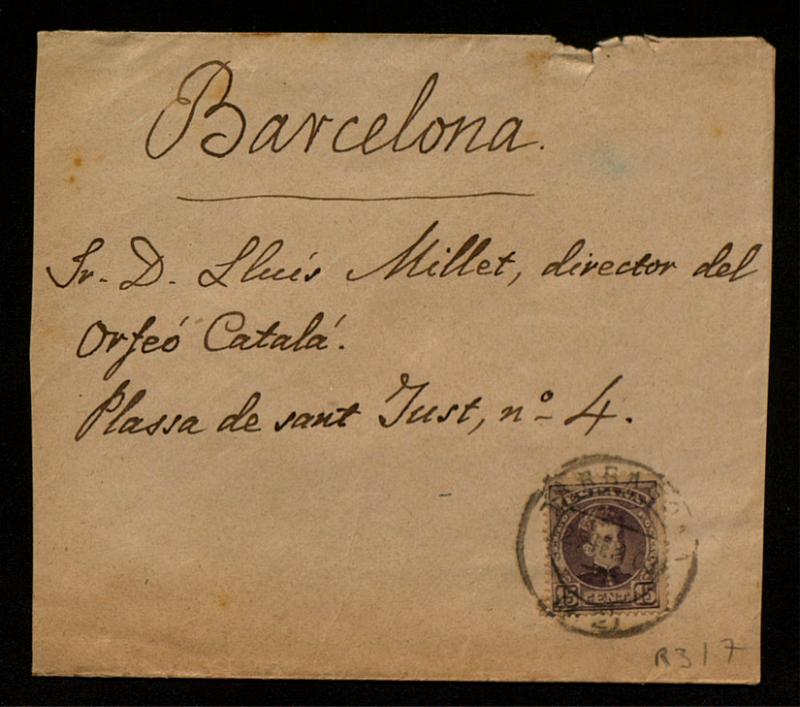 Barcelona.
Sr. D. Lluís Millet, director del
Orfeó Catalá.
Plassa de sant Just, nº 4.
TARRAGONA
ESPAÑA
15 CENT 15
R317